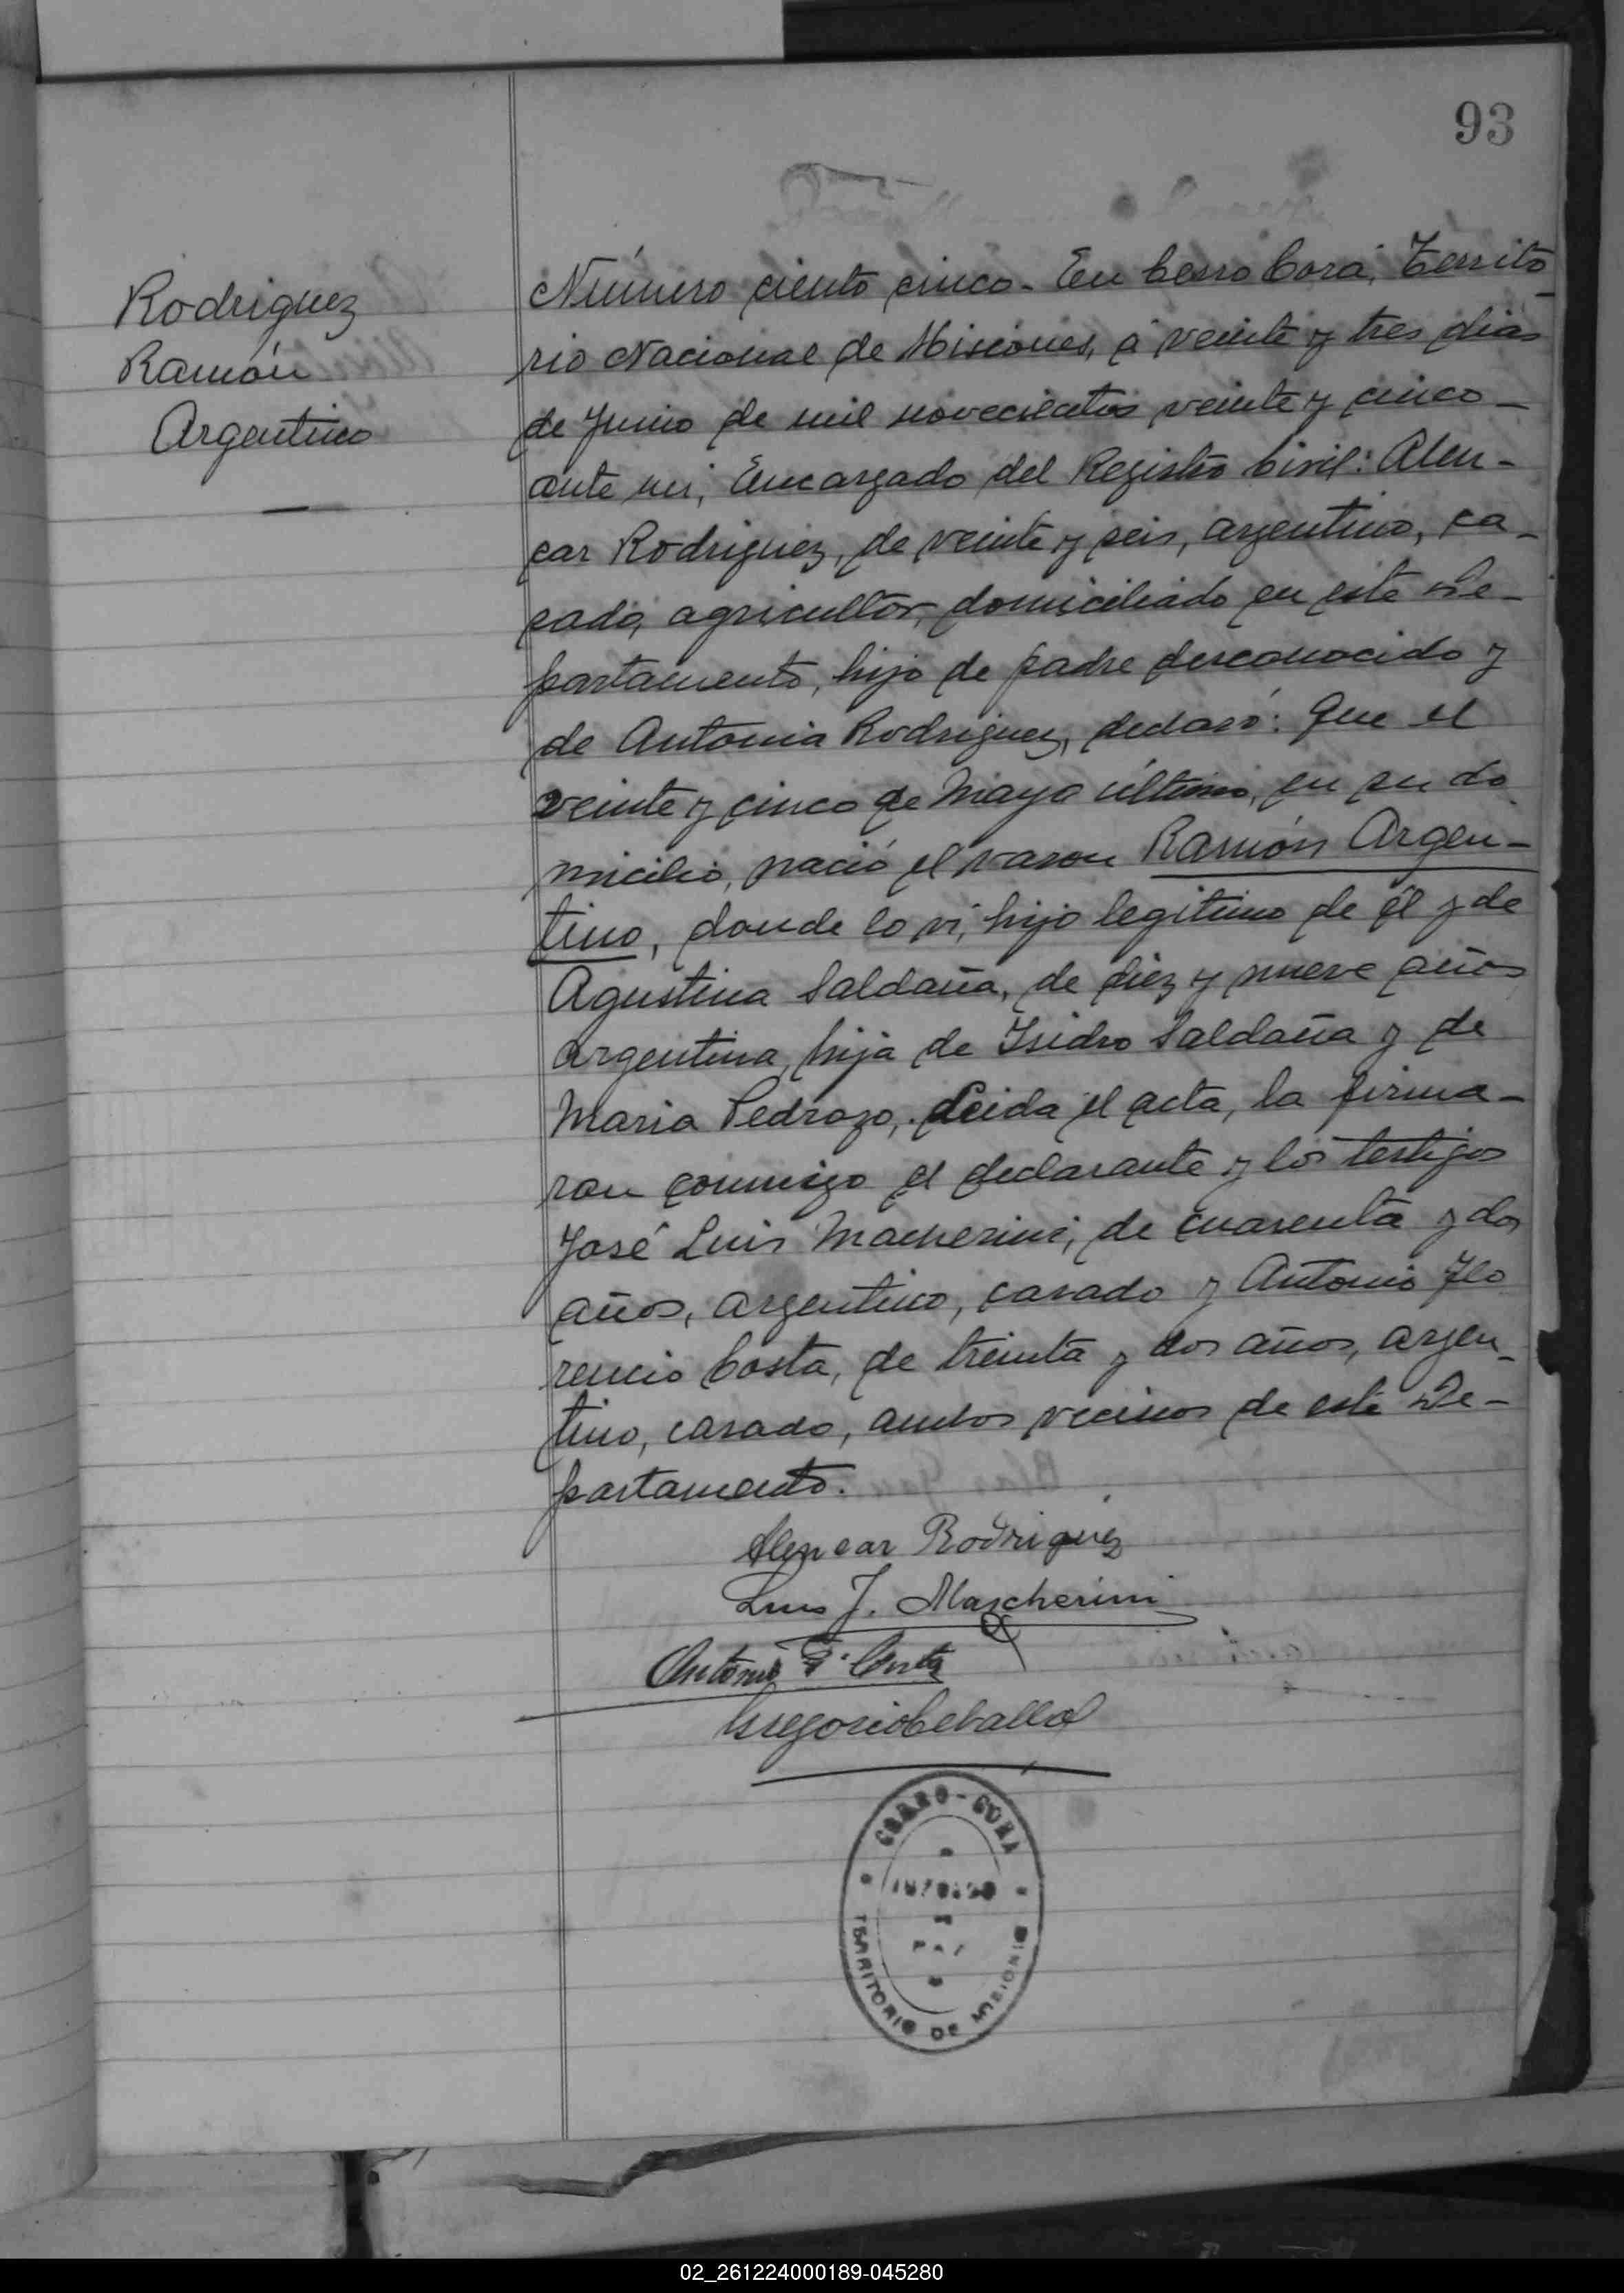 93
Rodriguez
Ramón
Argentino
Número ciento cinco - En Cerro Corá, Territo-
rio Nacional de Misiones, á veinte y tres dias
de Junio de mil novecientos veinte y cinco -
ante mi, Encargado del Registro Civil: Alen-
car Rodriguez, de veinte y seis, argentino, ca-
sado, agricultor, domiciliado en este De-
partamento, hijo de padre desconocido y
de Antonia Rodriguez, declaró: Que el
veinte y cinco de Mayo último, en su do
micilio, nació el varon Ramón Argen-
tino, donde lo vi, hijo legitimo de él y de
Agustina Saldaña, de diez y nueve años
argentina, hija de Isidro Saldaña y de
Maria Pedrozo, Leida el acta, la firma-
ron conmigo el declarante y los testigos
José Luis Macherini, de cuarenta y dos
años, argentino, casado y Antonio Flo
rencio Costa, de treinta y dos años, argen-
tino, casado, ambos vecinos de este De-
partamento.
Alencar Rodriguez
Luis J. Mascherini
Antonio F. Costa
Gregorio Ceballo
CERRO-CORÁ
PAZ
TERRITORIO DE MISIONES
02_261224000189-045280